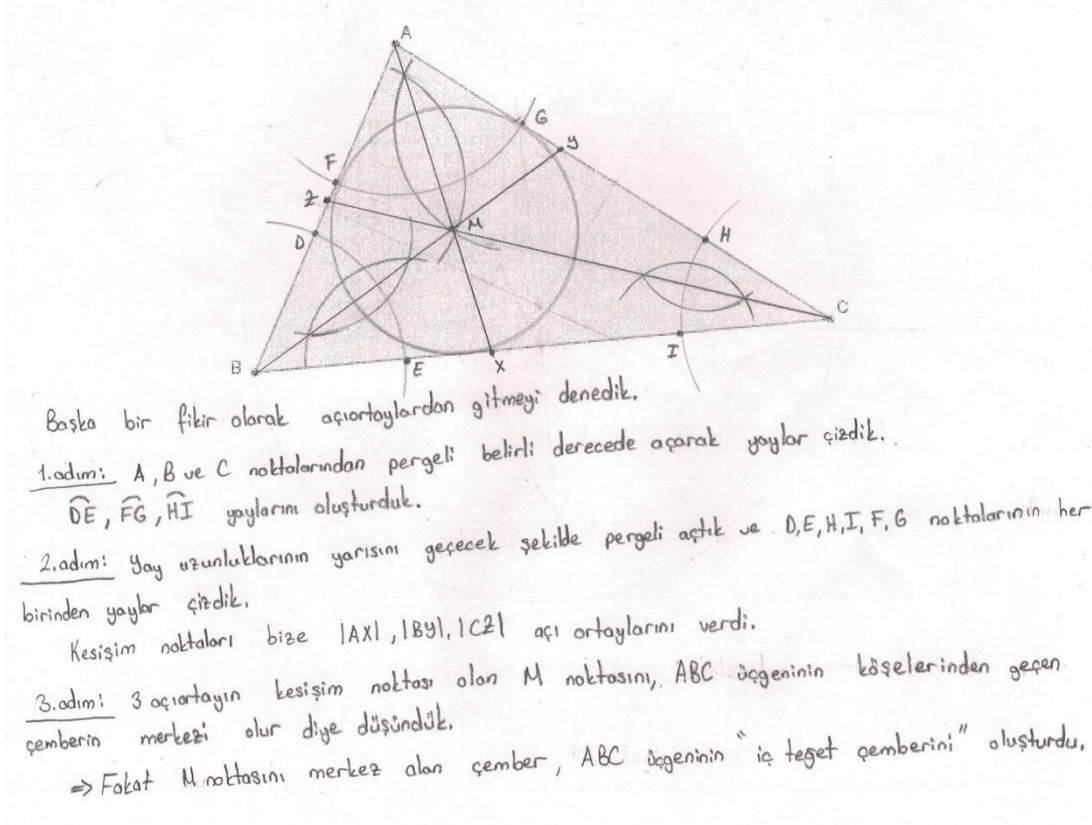 A
G
y
F
Z
D
M
H
C
B
E
X
I
Başka bir fikir olarak açıortaylardan gitmeyi denedik.
1.adım: A, B ve C noktalarından pergeli belirli derecede açarak yaylar çizdik.
D͡E, F͡G, H͡I yaylarını oluşturduk.
2.adım: Yay uzunluklarının yarısını geçecek şekilde pergeli açtık ve D,E,H,I,F,G noktalarının her
birinden yaylar çizdik.
Kesişim noktaları bize |AX|, |BY|, |CZ| açı ortaylarını verdi.
3.adım: 3 açıortayın kesişim noktası olan M noktasını, ABC üçgeninin köşelerinden geçen
çemberin merkezi olur diye düşündük.
⇒ Fakat M noktasını merkez alan çember, ABC üçgeninin "iç teğet çemberini" oluşturdu.